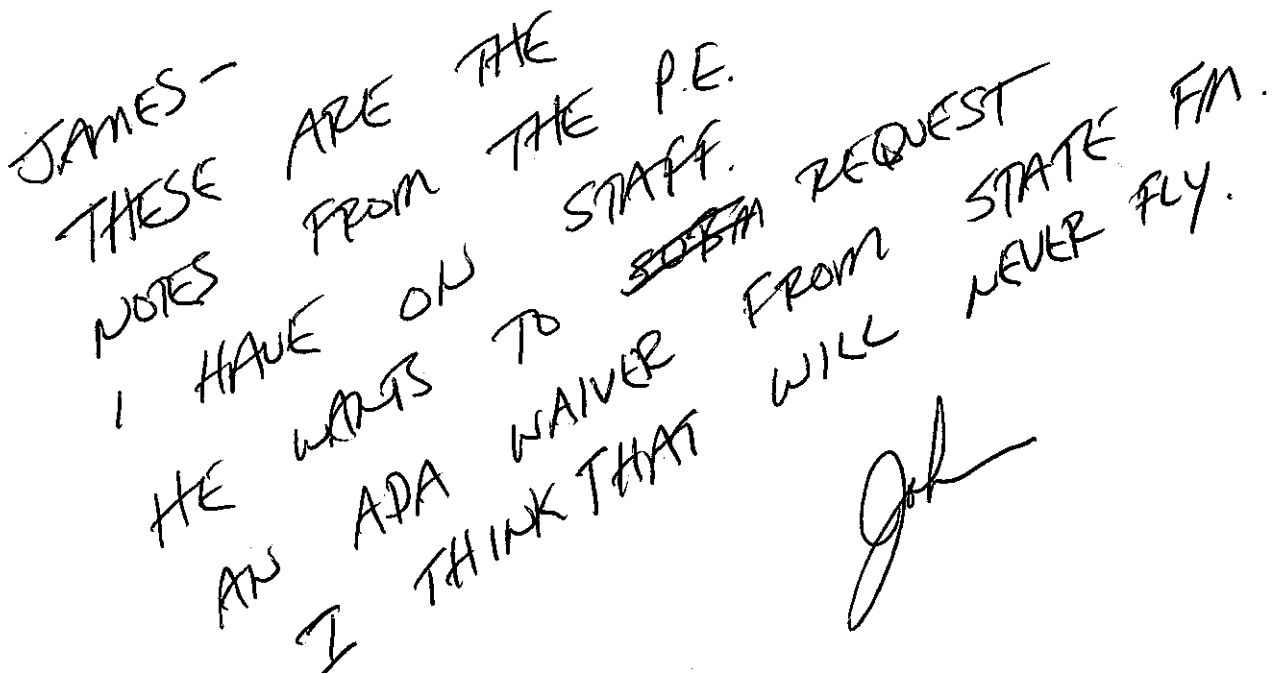 JAMES-
THESE ARE THE
NOTES FROM THE P.E.
I HAVE ON STAFF.
HE WANTS TO REQUEST
AN ADA WAIVER FROM STATE FM.
I THINK THAT WILL NEVER FLY.
John